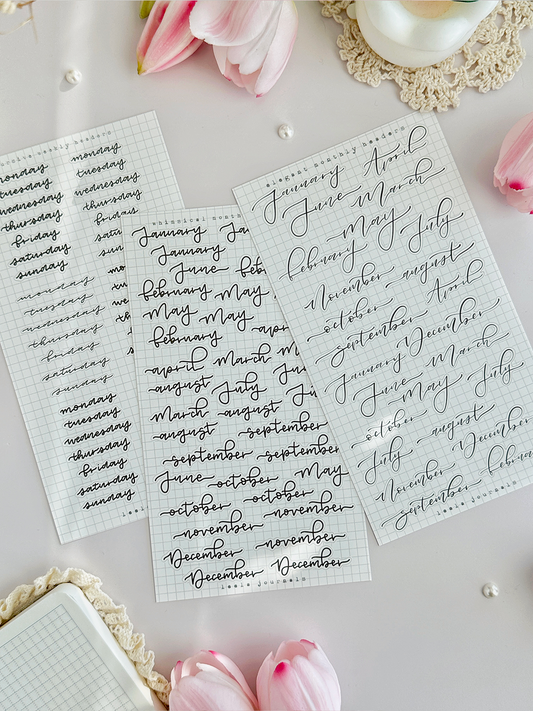 weekly headers
monday
tuesday
wednesday
thursday
friday
saturday
sunday
monday
tuesday
wednesday
thursday
friday
saturday
sunday
monday
tuesday
wednesday
thursday
friday
saturday
sunday
monday
tuesday
wednesday
thursday
friday
whimsical
January
January
June
february May
May May
february
april March
august July
March august
august september
september september
June october May
october october
november november
December november
December December
journals
elegant monthly headers
January April
June March
May
february July
November august
october April
september
January December
June March
May July
october
July august
November December
september
journals